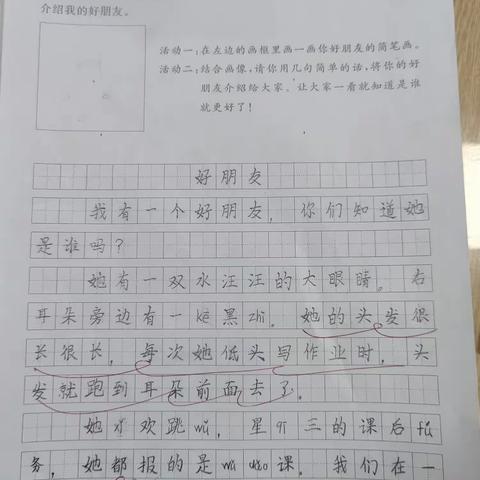 介绍我的好朋友。
活动一：在左边的画框里画一画你好朋友的简笔画。
活动二：结合画像，请你用几句简单的话，将你的好
朋友介绍给大家。让大家一看就知道是谁
就更好了！
好朋友
我有一个好朋友，你们知道她
是谁吗？
她有一双水汪汪的大眼睛。右
耳朵旁边有一kē黑zhì。她的头发很
长很长，每次她低头写作业时，头
发就跑到耳朵前面去了。
她xǐ欢跳wǔ，星qī三的课后fú
务，她都报的是wǔ dǎo课。我们在一